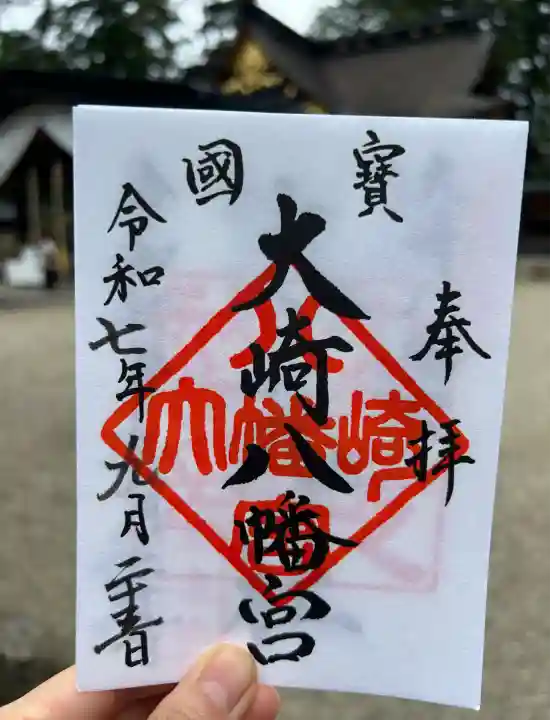 奉拝
寶國
大崎八幡宮
令和七年九月
大幡崎